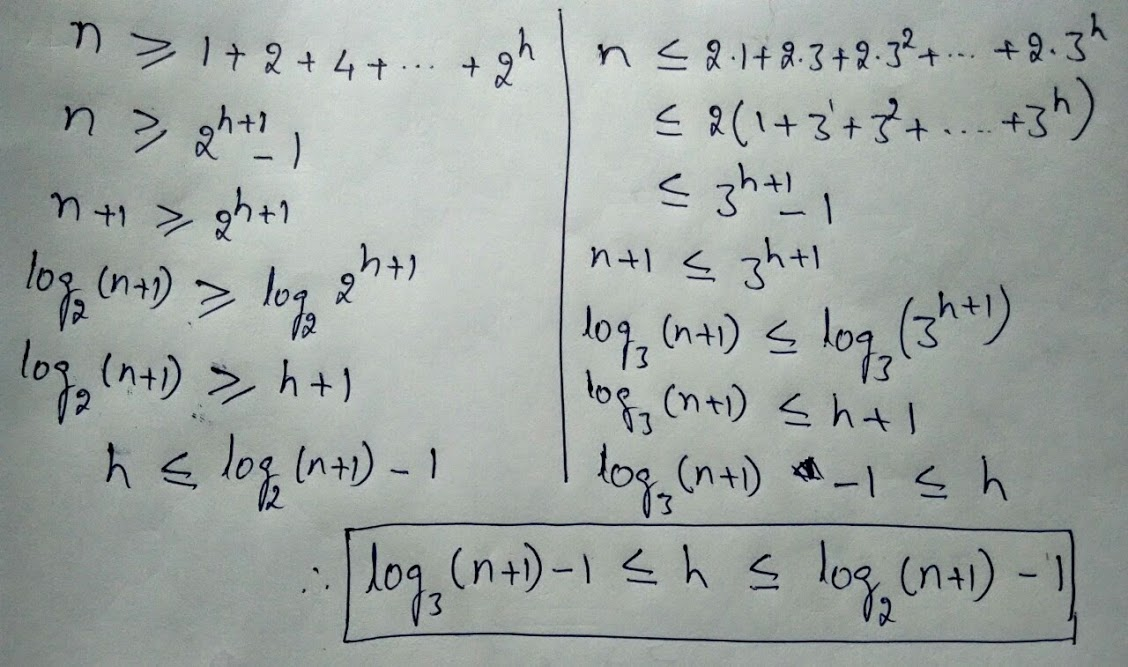 n ≥ 1 + 2 + 4 + ... + 2^h
n ≥ 2^(h+1) - 1
n+1 ≥ 2^(h+1)
log₂(n+1) ≥ log₂ 2^(h+1)
log₂(n+1) ≥ h+1
h ≤ log₂(n+1) - 1
n ≤ 2·1+2·3+2·3²+ ... +2·3^h
≤ 2(1+3¹+3²+ .... +3^h)
≤ 3^(h+1) - 1
n+1 ≤ 3^(h+1)
log₃(n+1) ≤ log₃(3^(h+1))
log₃(n+1) ≤ h+1
log₃(n+1) -1 ≤ h
∴ log₃(n+1)-1 ≤ h ≤ log₂(n+1) -1